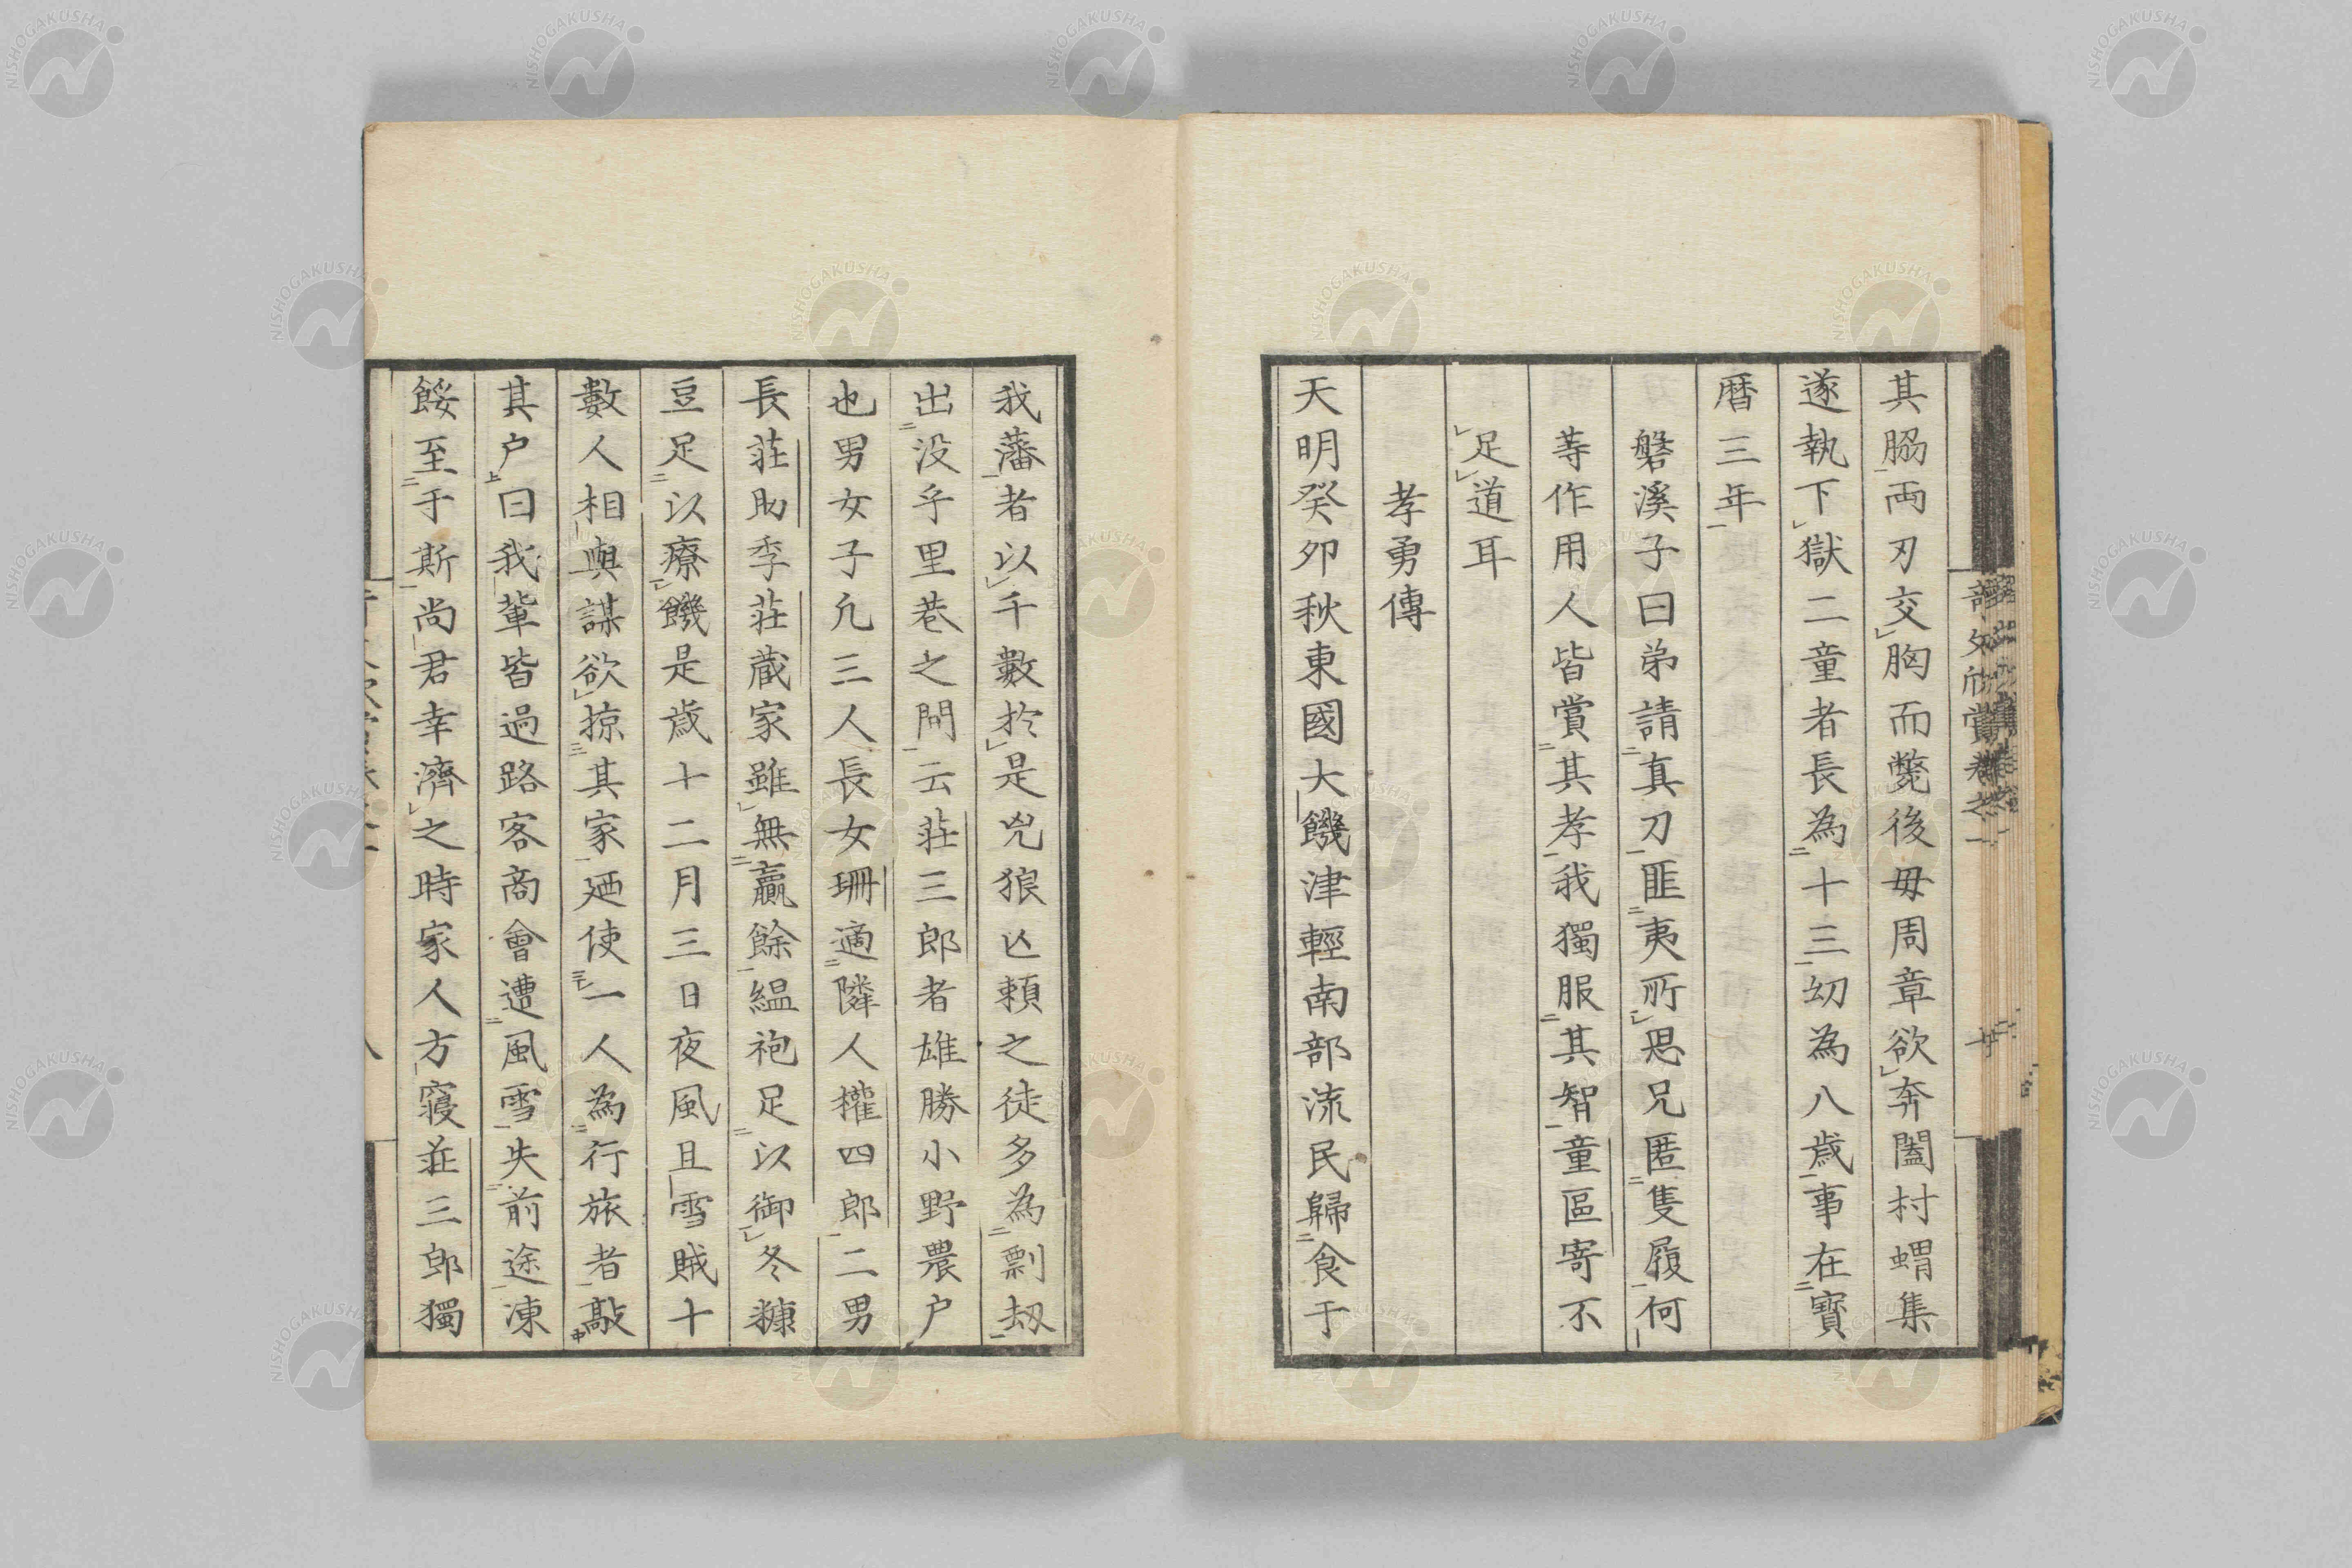 其脇両刃交胸而斃後毋周章欲奔闔村蝟集
遂執下獄二童者長為十三幼為八歳事在寳
暦三年
磐溪子曰弟請真刀匪夷所思兄匿隻履何
等作用人皆賞其孝我獨服其智童區寄不
足道耳
孝勇傳
天明癸卯秋東國大饑津輕南部流民歸食于
我藩者以千數於是兇狼亾頼之徒多為剽刼
出没乎里巷之間云莊三郎者雄勝小野農户
也男女子凢三人長女珊適隣人權四郎二男
長莊助季莊蔵家雖無贏餘緼袍足以御冬糠
豆足以療饑是歳十二月三日夜風且雪賊十
數人相與謀欲掠其家廼使一人為行旅者敲
其户曰我輩皆過路客商會遭風雪失前途凍
餒至于斯尚君幸濟之時家人方寢莊三郎獨